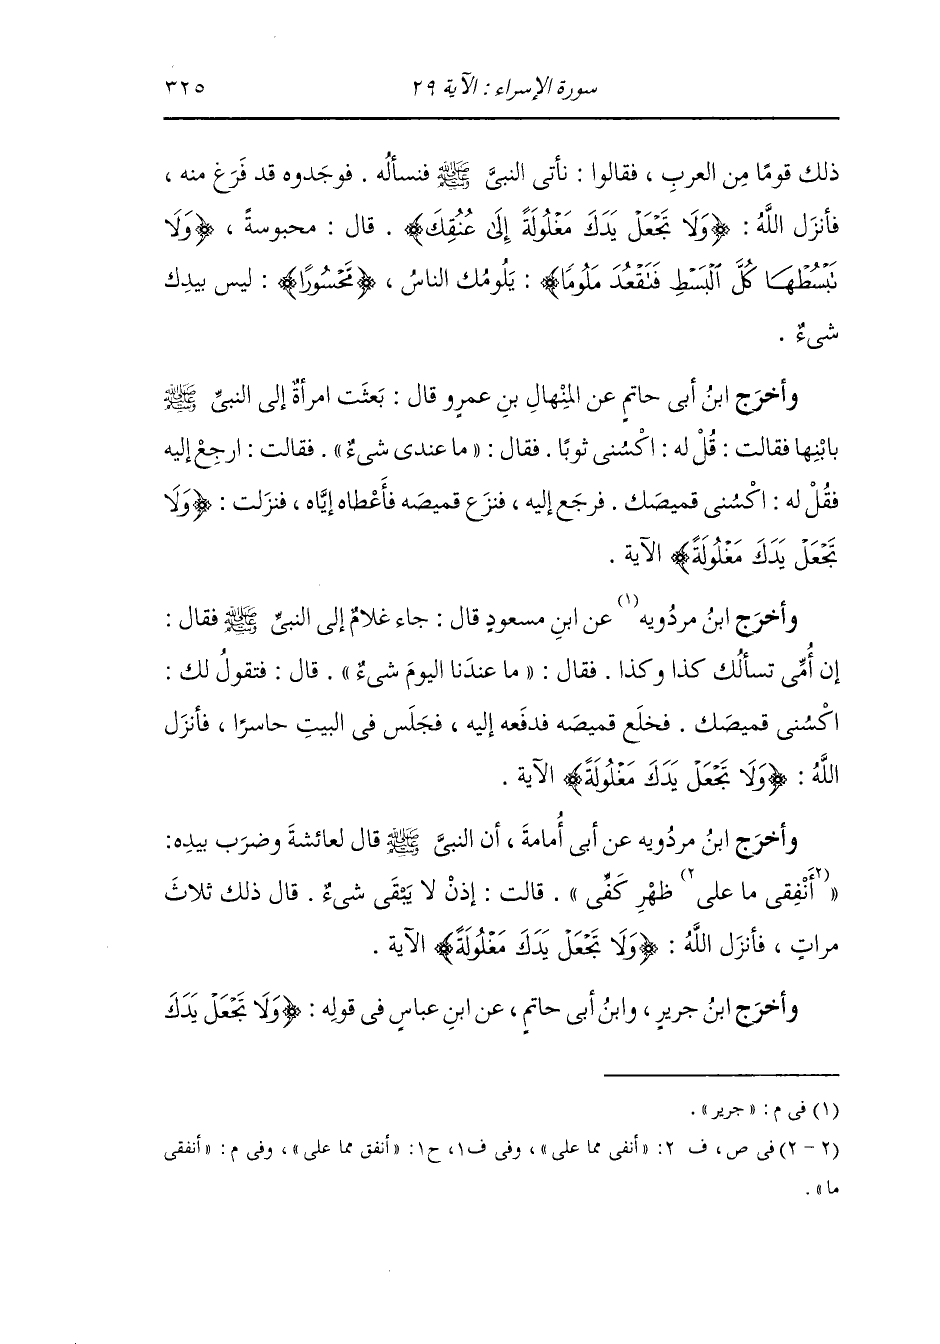 سورة الإسراء : الآية ٢٩ ٣٢٥
ذلك قومًا مِن العربِ ، فقالوا : نأتى النبىَّ ﷺ فنسألُه . فوجَدوه قد فَرَغ منه ،
فأنزَل اللَّهُ : ﴿وَلَا تَجْعَلْ يَدَكَ مَغْلُولَةً إِلَىٰ عُنُقِكَ﴾ . قال : محبوسةً ، ﴿وَلَا
تَبْسُطْهَا كُلَّ ٱلْبَسْطِ فَتَقْعُدَ مَلُومًا﴾ : يَلُومُك الناسُ ، ﴿مَّحْسُورًا﴾ : ليس بيدِك
شىءٌ .
وأخرَج ابنُ أبى حاتمٍ عن المِنْهالِ بنِ عمرٍو قال : بَعثَت امرأةٌ إلى النبىِّ ﷺ
بابْنِها فقالت : قُلْ له : اكْسُنى ثوبًا . فقال : « ما عندى شىءٌ » . فقالت : ارجِعْ إليه
فقُلْ له : اكْسُنى قميصَك . فرجَع إليه ، فنزَع قميصَه فأَعْطاه إيَّاه ، فنزَلت : ﴿وَلَا
تَجْعَلْ يَدَكَ مَغْلُولَةً﴾ الآية .
وأخرَج ابنُ مردُويه(١) عن ابنِ مسعودٍ قال : جاء غلامٌ إلى النبىِّ ﷺ فقال :
إن أُمِّى تسألُك كذا وكذا . فقال : « ما عندَنا اليومَ شىءٌ » . قال : فتقولُ لك :
اكْسُنى قميصَك . فخلَع قميصَه فدفَعه إليه ، فجَلَس فى البيتِ حاسرًا ، فأنزَل
اللَّهُ : ﴿وَلَا تَجْعَلْ يَدَكَ مَغْلُولَةً﴾ الآية .
وأخرَج ابنُ مردُويه عن أبى أُمامةَ ، أن النبىَّ ﷺ قال لعائشةَ وضرَب بيدِه:
« (٢أَنْفِقى ما على٢) ظهْرِ كَفِّى » . قالت : إذنْ لا يَبْقَى شىءٌ . قال ذلك ثلاثَ
مراتٍ ، فأنزَل اللَّهُ : ﴿وَلَا تَجْعَلْ يَدَكَ مَغْلُولَةً﴾ الآية .
وأخرَج ابنُ جريرٍ ، وابنُ أبى حاتمٍ ، عن ابنِ عباسٍ فى قولِه : ﴿وَلَا تَجْعَلْ يَدَكَ
(١) فى م : « جرير » .
(٢ - ٢) فى ص ، ف ٢: « أنفى مما على » ، وفى ف١، ح١: « أنفق مما على » ، وفى م : « أنفقى
ما » .